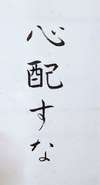 心配すな